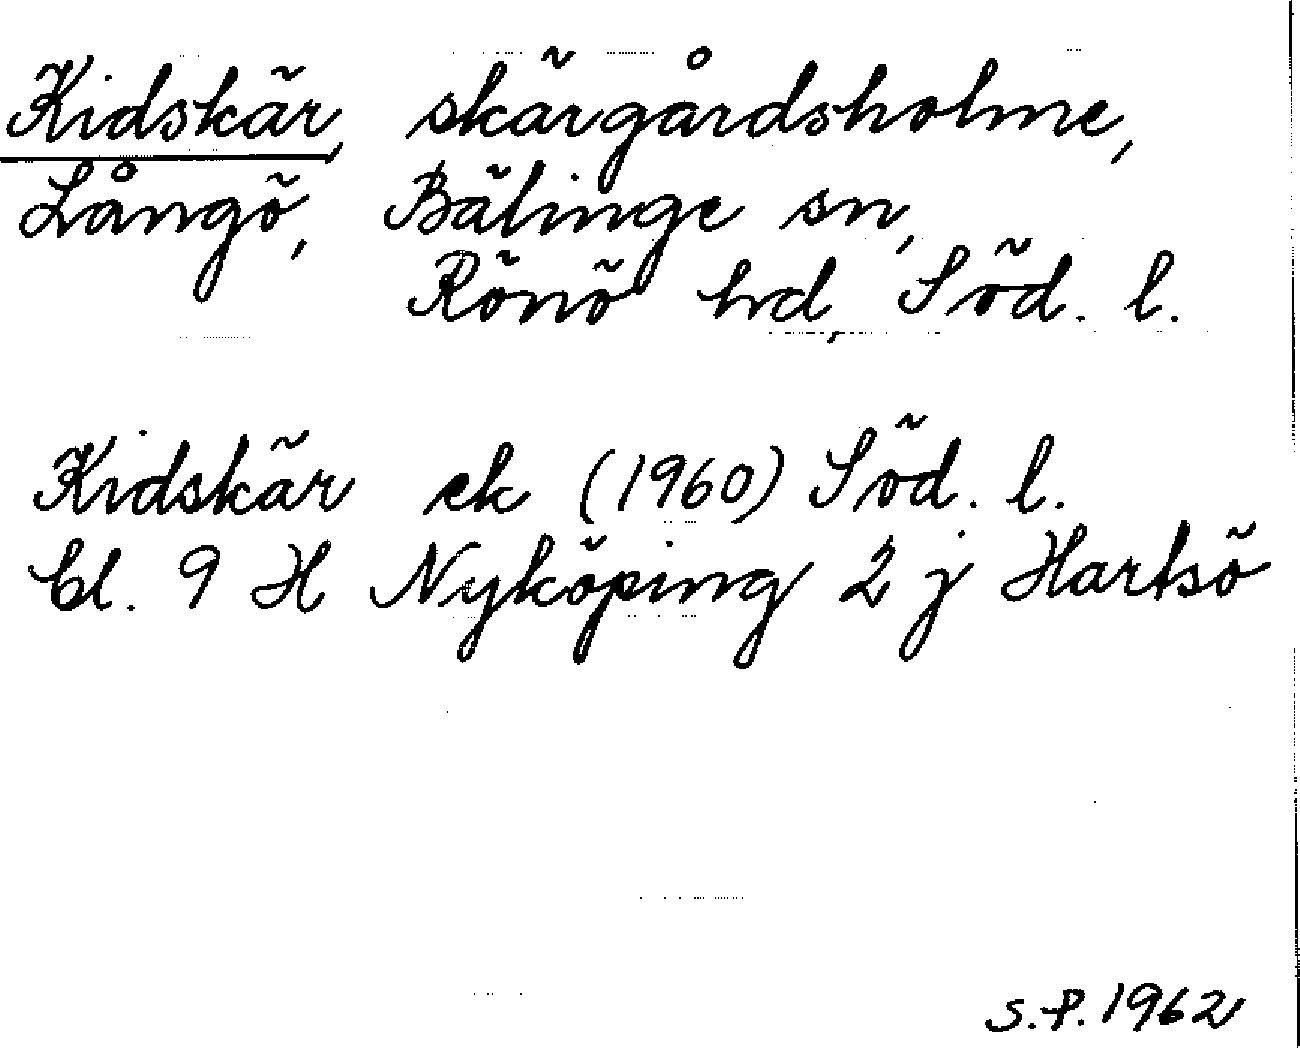 Kidskär, skärgårdsholme,
Långö, Bälinge sn,
Rönö hd, Söd. l.
Kidskär ek (1960) Söd. l.
bl. 9 H Nyköping 2 j Hartsö
S.P. 1962